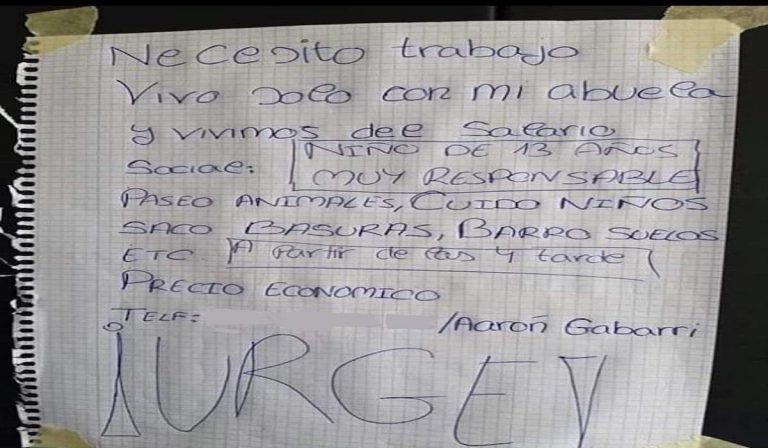 Necesito trabajo
Vivo solo con mi abuela
y vivimos del Salario
Social: NIÑO DE 13 AÑOS
MUY RESPONSABLE
PASEO ANIMALES, CUIDO NIÑOS
SACO BASURAS, BARRO SUELOS
ETC A partir de las 4 tarde
PRECIO ECONOMICO
TELF: /Aarón Gabarri
¡URGE!